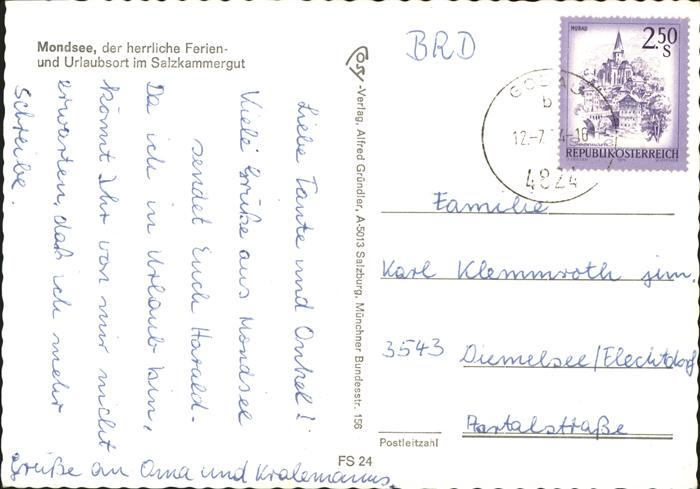 Mondsee, der herrliche Ferien-
und Urlaubsort im Salzkammergut
Liebe Tante und Onkel!
Viele Grüße aus Mondsee
sendet Euch Harald.
Da ich in Urlaub bin,
könnt Ihr von mir nicht
erwarten, daß ich mehr
schreibe.
Grüße an Oma und Kralemanns.
Cosy-Verlag, Alfred Gründler, A-5013 Salzburg, Münchner Bundesstr. 156
FS 24
BRD
MURAU
2.50
S
REPUBLIK ÖSTERREICH
GOSAU
b
12.-7. 74-16
4824
Familie
Karl Klemmroth jun.
3543 Diemelsee/Flechtdorf
Portalstraße
Postleitzahl